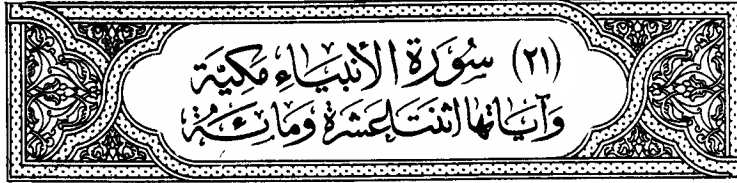 (٢١) سُورَة الأنبيَاءِ مَكِيَّة
وَآيَاتها اثنتَا عَشرَة وَمَائة